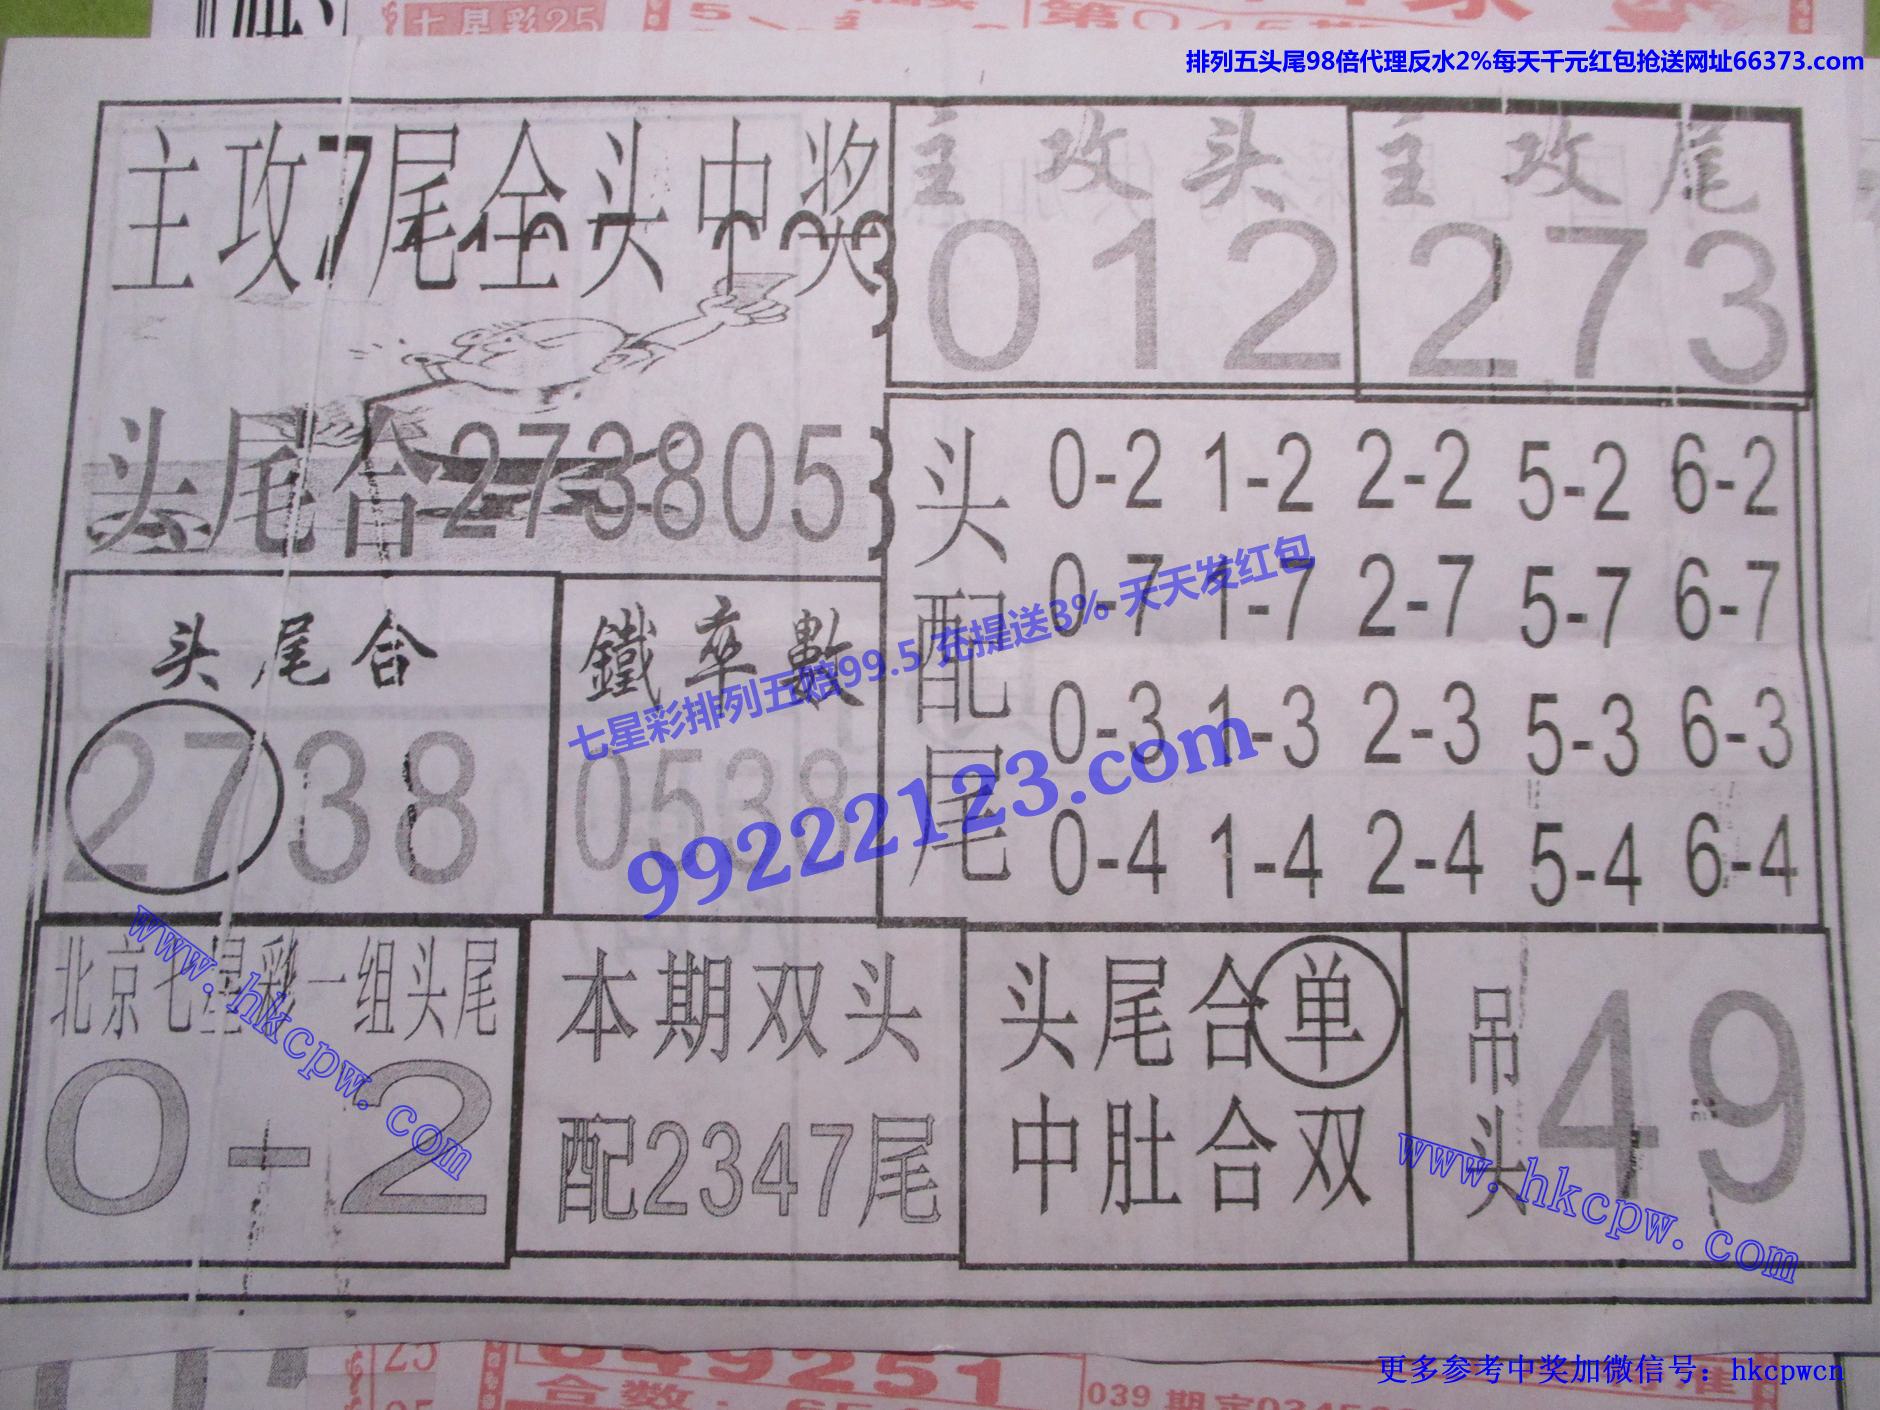 七星彩25
排列五头尾98倍代理反水2%每天千元红包抢送网址66373.com
主攻7尾全头中奖
主攻头
012
主攻尾
273
头尾合273805
头配尾
0-2 1-2 2-2 5-2 6-2
0-7 1-7 2-7 5-7 6-7
0-3 1-3 2-3 5-3 6-3
0-4 1-4 2-4 5-4 6-4
头尾合
2738
鐵率數
0538
七星彩排列五赔99.5 充提送3% 天天发红包
99222123.com
北京七星彩一组头尾
0-2
www.hkcpw.com
本期双头
配2347尾
头尾合单
中肚合双
吊头
49
www.hkcpw.com
25
849251
合数:
039 期定
更多参考中奖加微信号：hkcpwcn